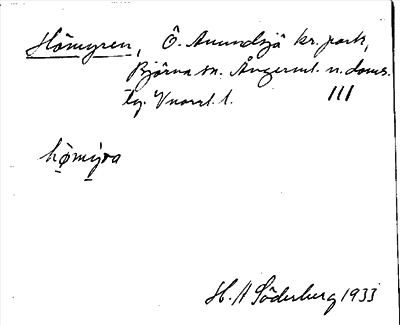 Hömyren, Ö. Anundsjö kr. park,
Björna sn. Ångerml. n. doms.
tg. Vnorrl. l. III
hømyra
H. A Söderberg 1933